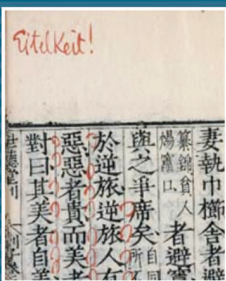 Eitelkeit!
妻執巾櫛舍者避
者避竈
與之爭席矣 自同
於逆旅逆旅人有
惡惡者貴而美者
對曰其美者自美
世德堂刊